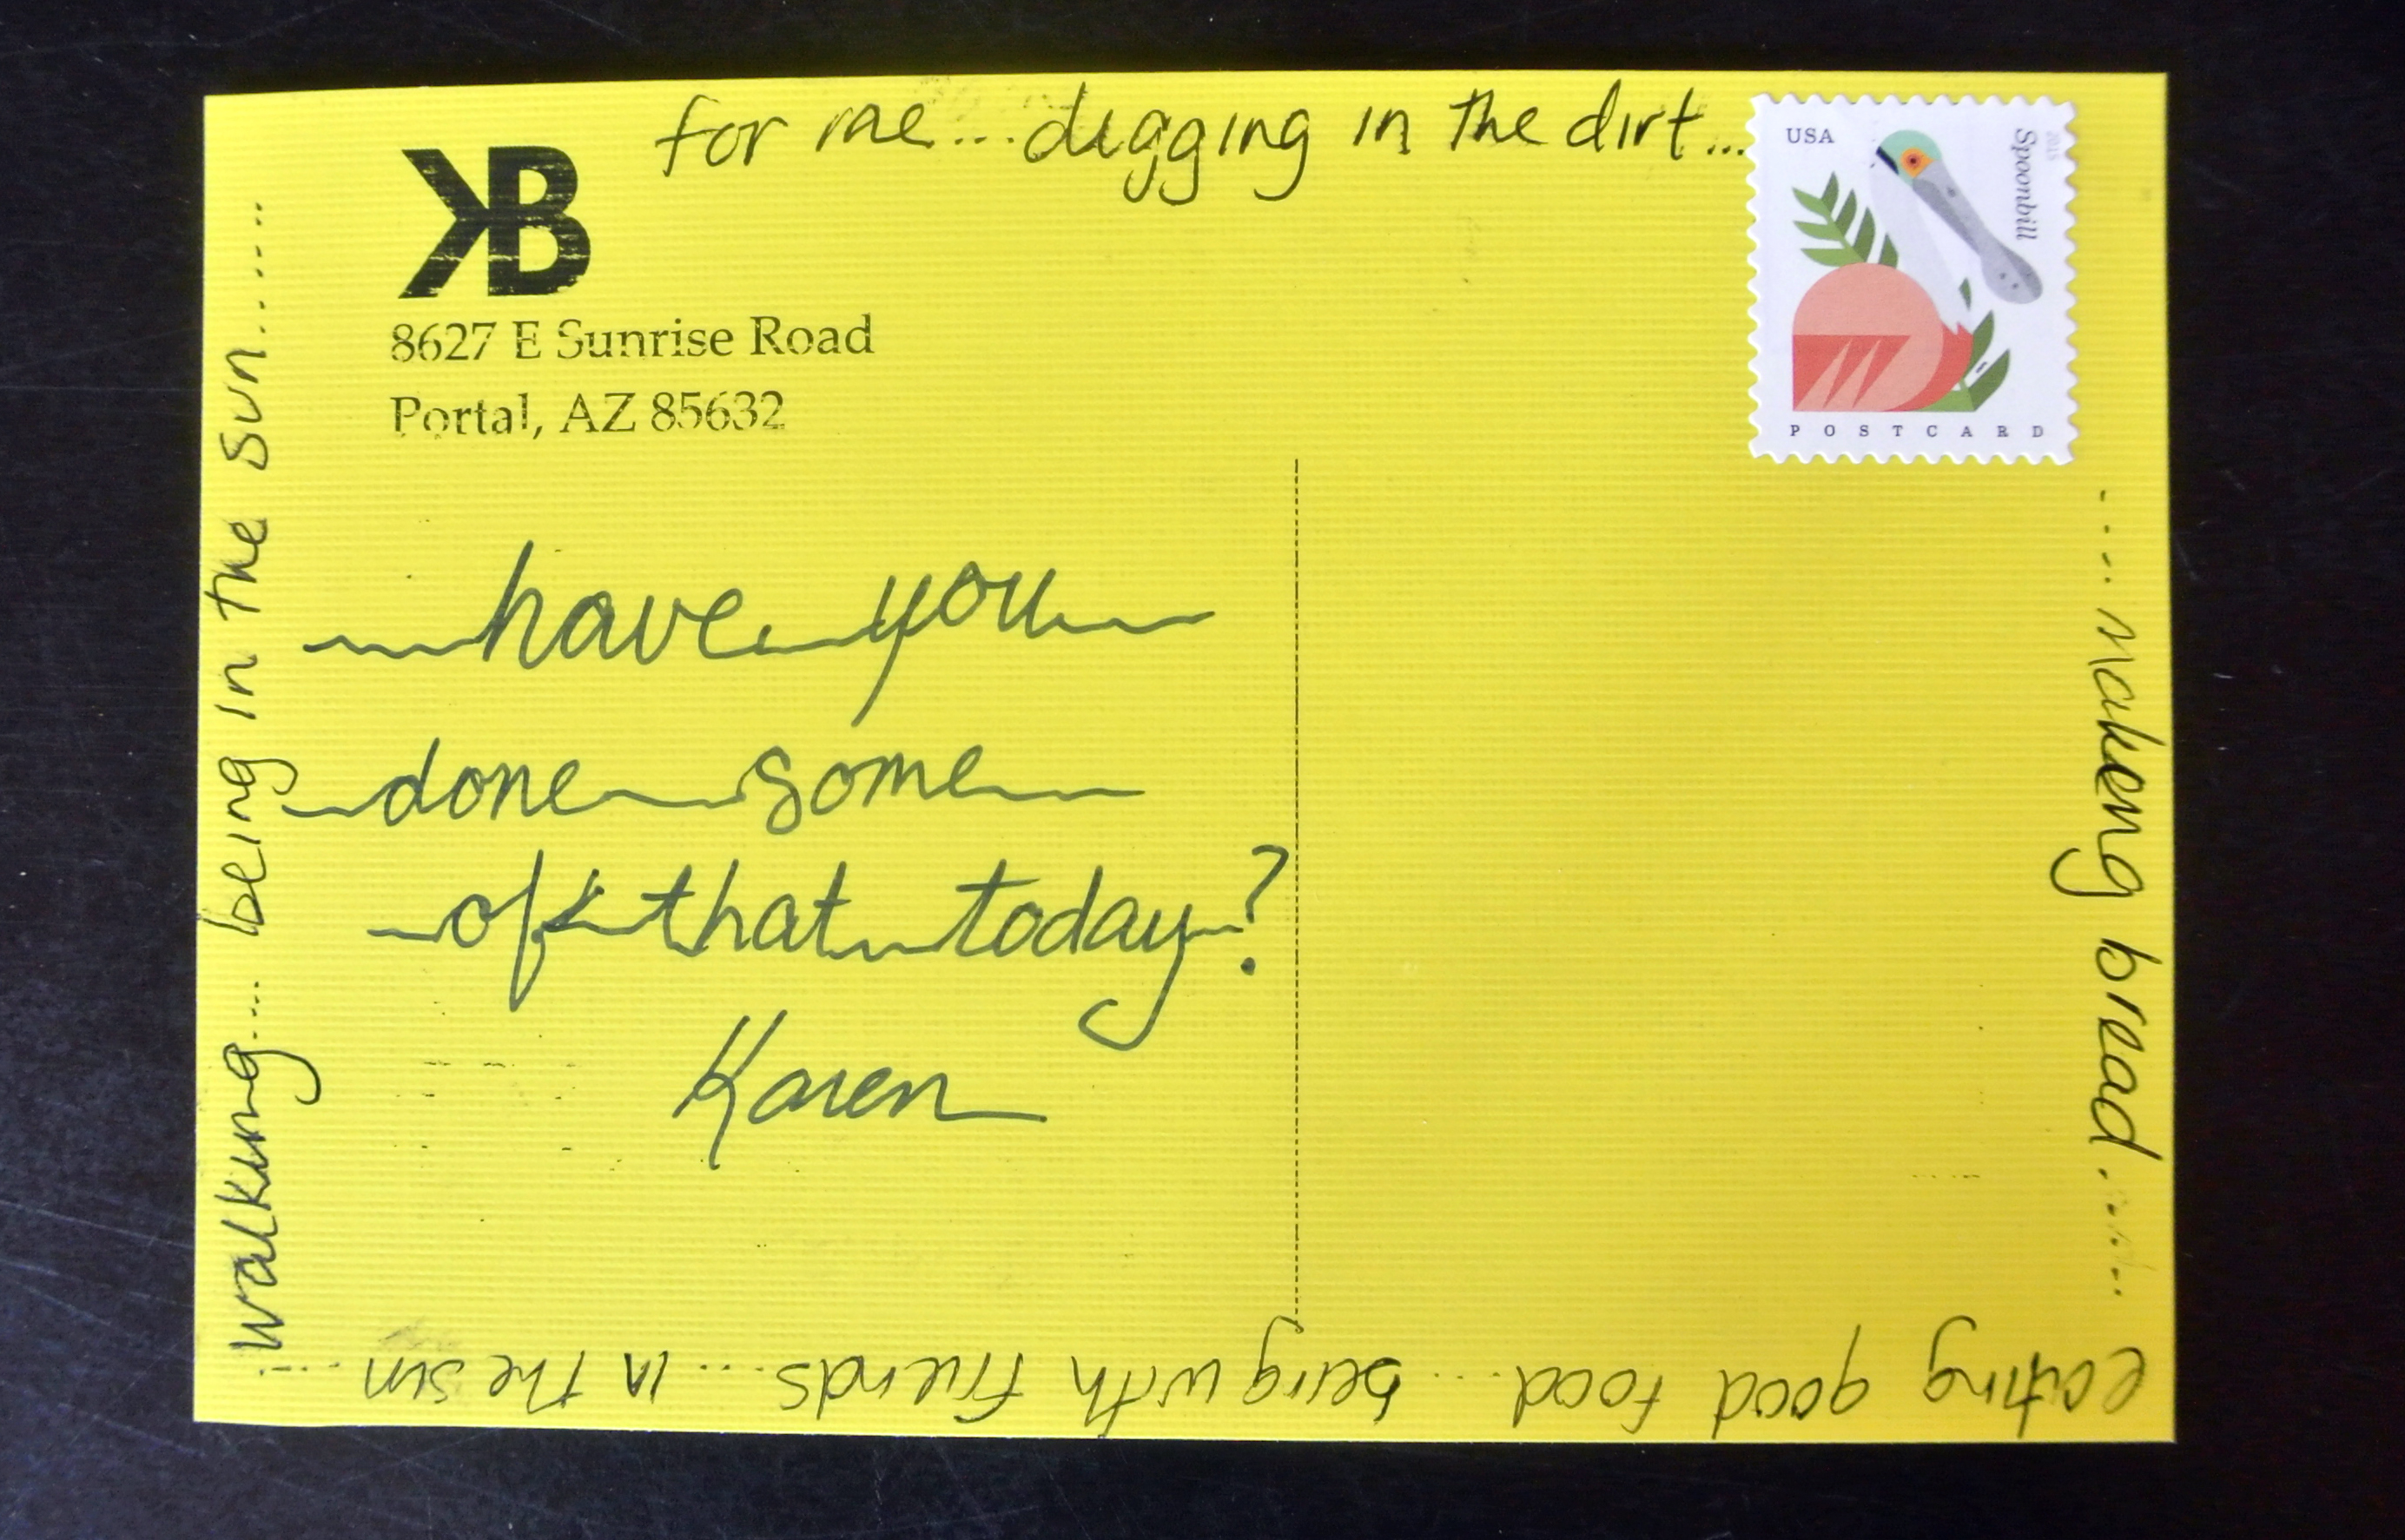 for me...digging in the dirt...
KB
8627 E Sunrise Road
Portal, AZ 85632
USA
Spoonbill
2015
POSTCARD
....making bread......
eating good food....being with friends....in the sun....
walking.... being in the sun......
have you
done some
of that today?
Karen